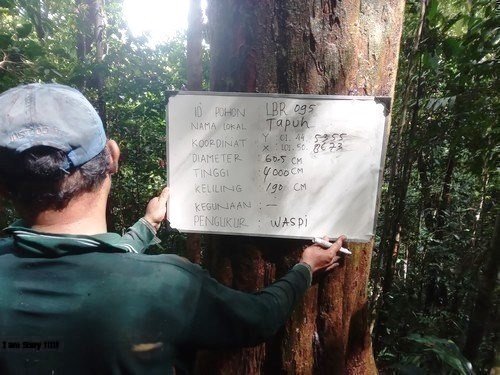 ID POHON : LBR 095
NAMA LOKAL : Tapuh
KOORDINAT : Y : 01. 44. 5955
X : 101. 50. 8673
DIAMETER : 60.5 CM
TINGGI : 4000 CM
KELILING : 190 CM
KEGUNAAN : —
PENGUKUR : WASDI